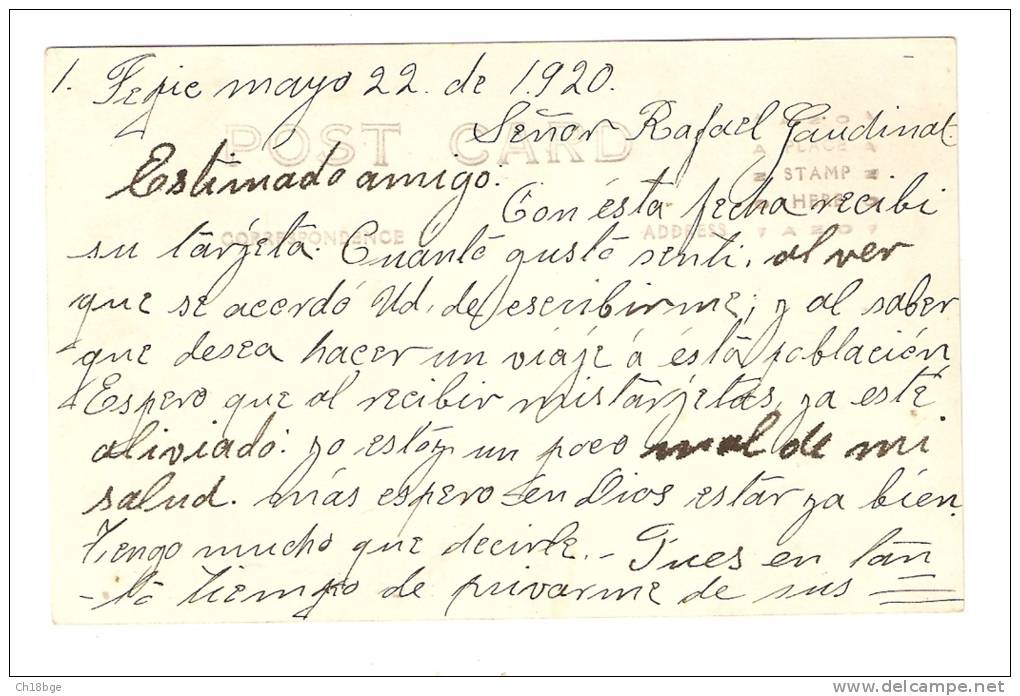 1. Tepic mayo 22. de 1.920.
Señor Rafael Gaudinat
POST CARD
PLACE
STAMP
HERE
Estimado amigo:
Con ésta fecha recibi
CORRESPONDENCE
ADDRESS
su tarjeta. Cuanto gusto senti, al ver
que se acordó Ud. de escribirme; y al saber
que desea hacer un viaje á ésta población
Espero que al recibir mis tarjetas, ya esté
aliviado: yo estoy un poco mal de mi
salud. más espero en Dios estar ya bien.
Tengo mucho que decirle.- Pues en tan
-to tiempo de privarme de sus
Ch18bge
www.delcampe.net